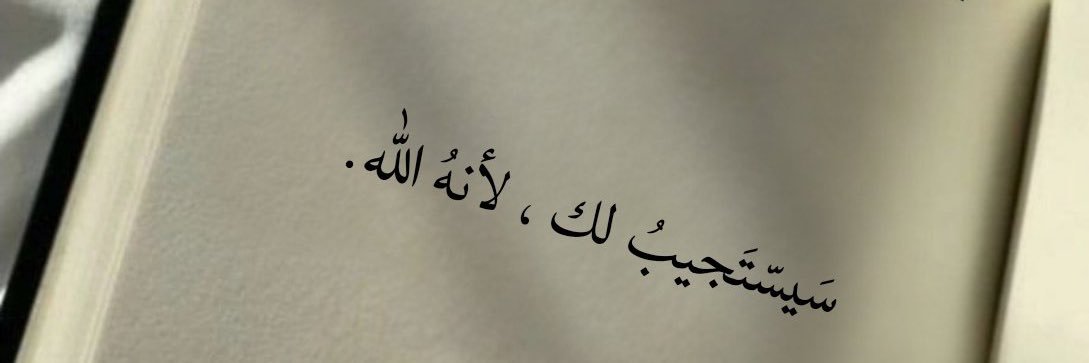 سَيسّتَجيبُ لك ، لأنهُ اللّٰه.